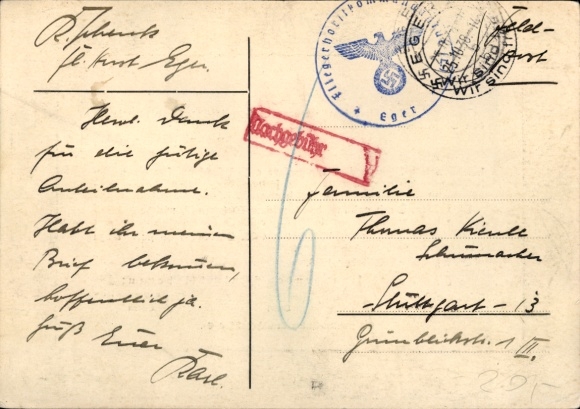 K. Schenk
Fl. Horst Eger.
Herzl. Dank
für die gütige
Anteilnahme.
Habt ihr meinen
Brief bekommen,
hoffentlich ja.
Gruß Euer
Karl.
Fliegerhorstkommandantur
* Eger *
EGER
25.10.38
Wir sind
Feld-
post
Nachgebühr
6
Familie
Thomas Kienle
Schumacher
Stuttgart-13
1 III.